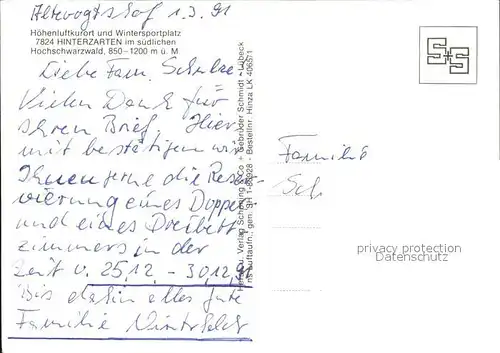 Altevogtshof 1.3.91
Höhenluftkurort und Wintersportplatz
7824 HINTERZARTEN im südlichen
Hochschwarzwald, 850–1200 m ü. M.
Liebe Fam. Schulze.
Vielen Dank für
Ihren Brief. Hier-
mit bestätigen wir
Ihnen gerne die Reser-
vierung eines Doppel-
und eines Dreibett-
zimmers in der
Zeit v. 25.12. – 30.12.91
Bis dahin alles gute
Familie
Verlag Schöning & Co + Gebrüder Schmidt · Lübeck
Luftaufn.: gem. SH 1-93928 · Bestellnr. Hinza LK 40657/1
Familie
Sch
privacy protection
Datenschutz